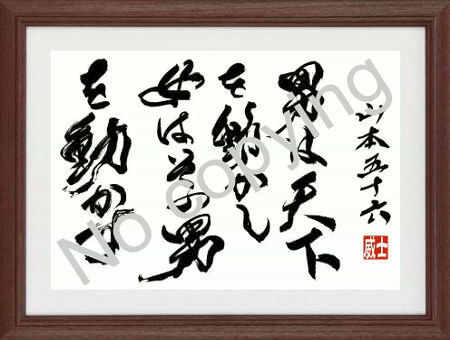 山本五十六
男は天下
を動かし
女はその男
を動かす
威士
No copying